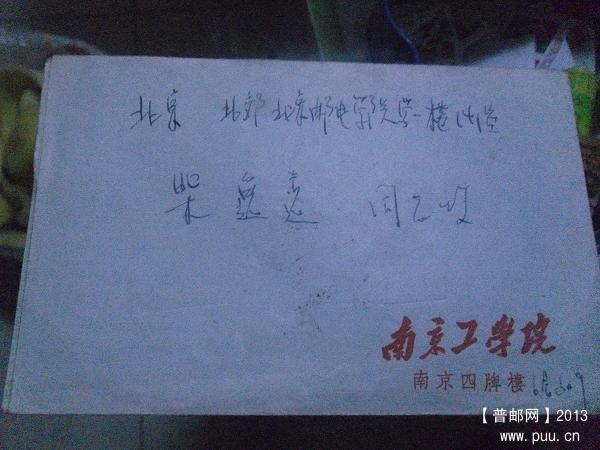 北京 北郊 北京邮电学院学一楼
柴 同志收
南京工學院
南京四牌樓
【普邮网】2013
www.puu.cn